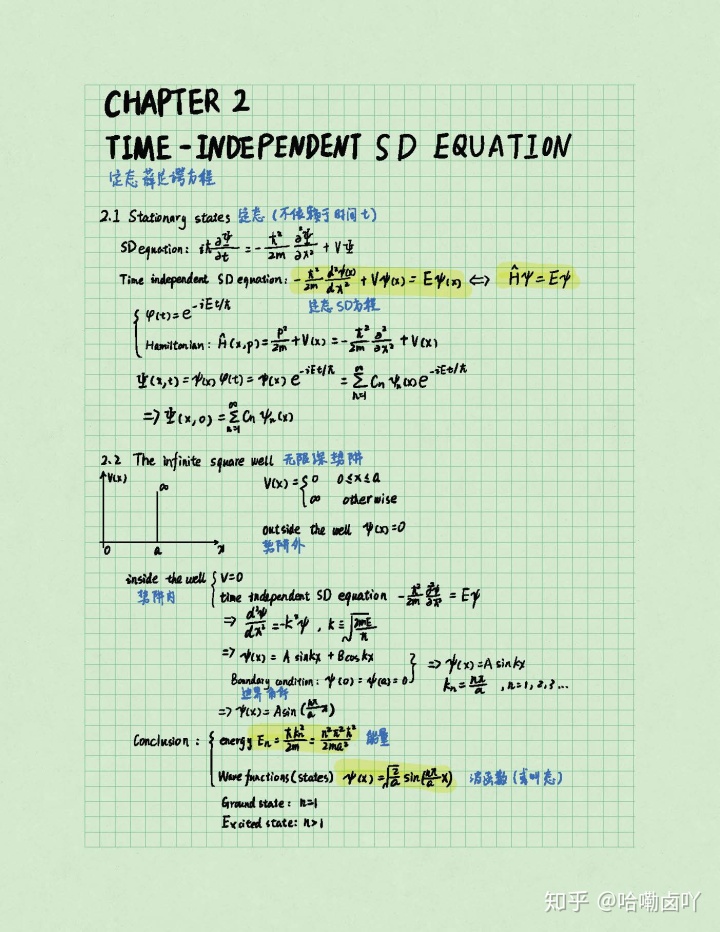 CHAPTER 2
TIME-INDEPENDENT SD EQUATION
定态薛定谔方程
2.1 Stationary states 定态 (不依赖于时间 t)
SD equation: iℏ ∂Ψ/∂t = - ℏ²/2m ∂²Ψ/∂x² + VΨ
Time independent SD equation: - ℏ²/2m d²ψ(x)/dx² + Vψ(x) = Eψ(x) ⇔ Ĥψ = Eψ
定态 SD方程
{ φ(t) = e^{-iEt/ℏ}
Hamiltonian: Ĥ(x,p) = p²/2m + V(x) = - ℏ²/2m ∂²/∂x² + V(x)
Ψ(x,t) = ψ(x) φ(t) = ψ(x) e^{-iEt/ℏ} = Σ_{n=1}^{∞} Cn ψn(x) e^{-iEt/ℏ}
⇒ Ψ(x,0) = Σ_{n=1}^{∞} Cn ψn(x)
2.2 The infinite square well 无限深势阱
V(x) ∞ 0 a x
V(x) = { 0 0≤x≤a
∞ otherwise
outside the well ψ(x)=0
势阱外
inside the well { V=0
势阱内
time independent SD equation - ℏ²/2m ∂²ψ/∂x² = Eψ
⇒ d²ψ/dx² = -k²ψ , k ≡ √2mE/ℏ
⇒ ψ(x) = A sinkx + B coskx
Boundary condition: ψ(0) = ψ(a) = 0 } ⇒ ψ(x) = A sinkx
边界条件
kn = nπ/a , n=1,2,3...
⇒ ψ(x) = A sin(nπ/a x)
Conclusion: { energy En = ℏkn²/2m = n²π²ℏ²/2ma² 能量
Wave functions (states) ψ(x) = √2/a sin(nπ/a x) 波函数 (或叫态)
Ground state: n=1
Excited state: n>1
知乎 @哈嘞卤吖